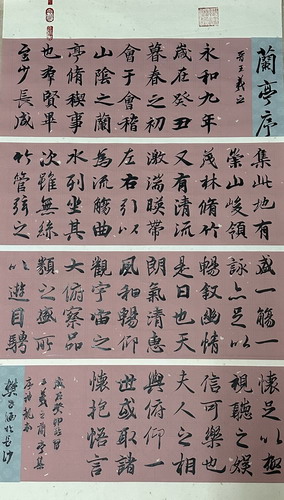 蘭亭序
晉王羲之
永和九年
歲在癸丑
暮春之初
會于會稽
山陰之蘭
亭脩禊事
也羣賢畢
至少長咸
集此地有
崇山峻領
茂林脩竹
又有清流
激湍暎帶
左右引以
為流觴曲
水列坐其
次雖無絲
竹管弦之
盛一觴一
詠亦足以
暢叙幽情
是日也天
朗氣清惠
風和暢仰
觀宇宙之
大俯察品
類之盛所
以遊目騁
懷足以極
視聽之娛
信可樂也
夫人之相
與俯仰一
世或取諸
懷抱悟言
歲在癸卯
王羲之蘭亭集
序神龍本
樊於長沙